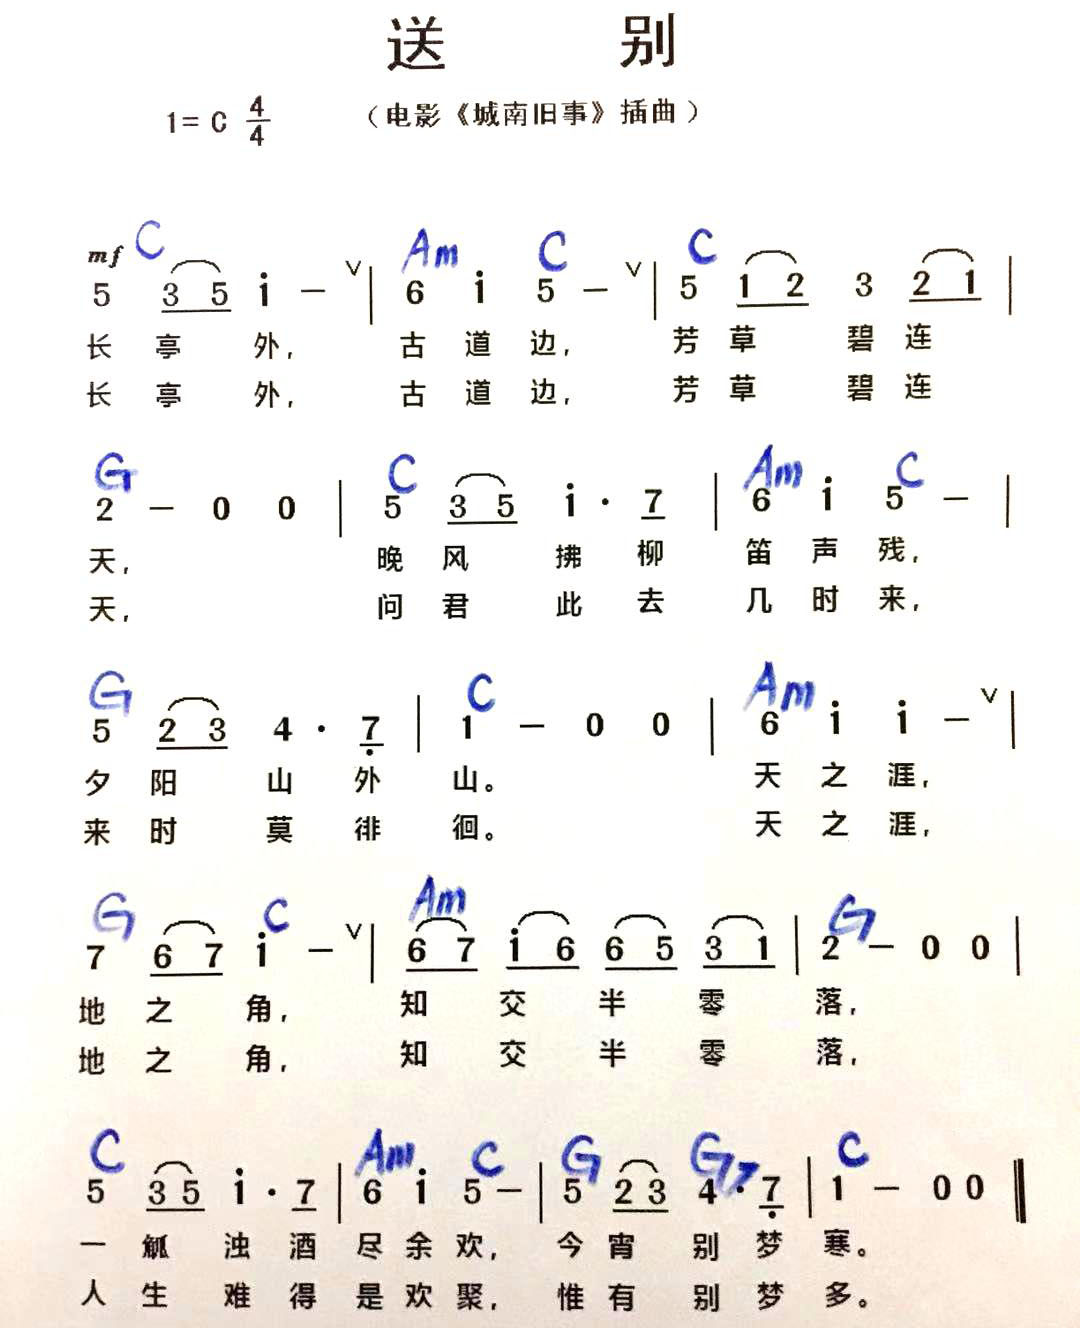 送 别
1= C 4/4 （电影《城南旧事》插曲）
mf C Am C C
5 3 5 i – ∨ | 6 i 5 – ∨ | 5 1 2 3 2 1 |
长 亭 外, 古 道 边, 芳 草 碧 连
长 亭 外, 古 道 边, 芳 草 碧 连
G C Am C
2 – 0 0 | 5 3 5 i · 7 | 6 i 5 – |
天, 晚 风 拂 柳 笛 声 残,
天, 问 君 此 去 几 时 来,
G C Am
5 2 3 4 · 7 | 1 – 0 0 | 6 i i – ∨ |
夕 阳 山 外 山。 天 之 涯,
来 时 莫 徘 徊。 天 之 涯,
G C Am G
7 6 7 i – ∨ | 6 7 i 6 6 5 3 1 | 2 – 0 0 |
地 之 角, 知 交 半 零 落,
地 之 角, 知 交 半 零 落,
C Am C G G7 C
5 3 5 i · 7 | 6 i 5 – | 5 2 3 4 · 7 | 1 – 0 0 ‖
一 觚 浊 酒 尽 余 欢, 今 宵 别 梦 寒。
人 生 难 得 是 欢 聚, 惟 有 别 梦 多。